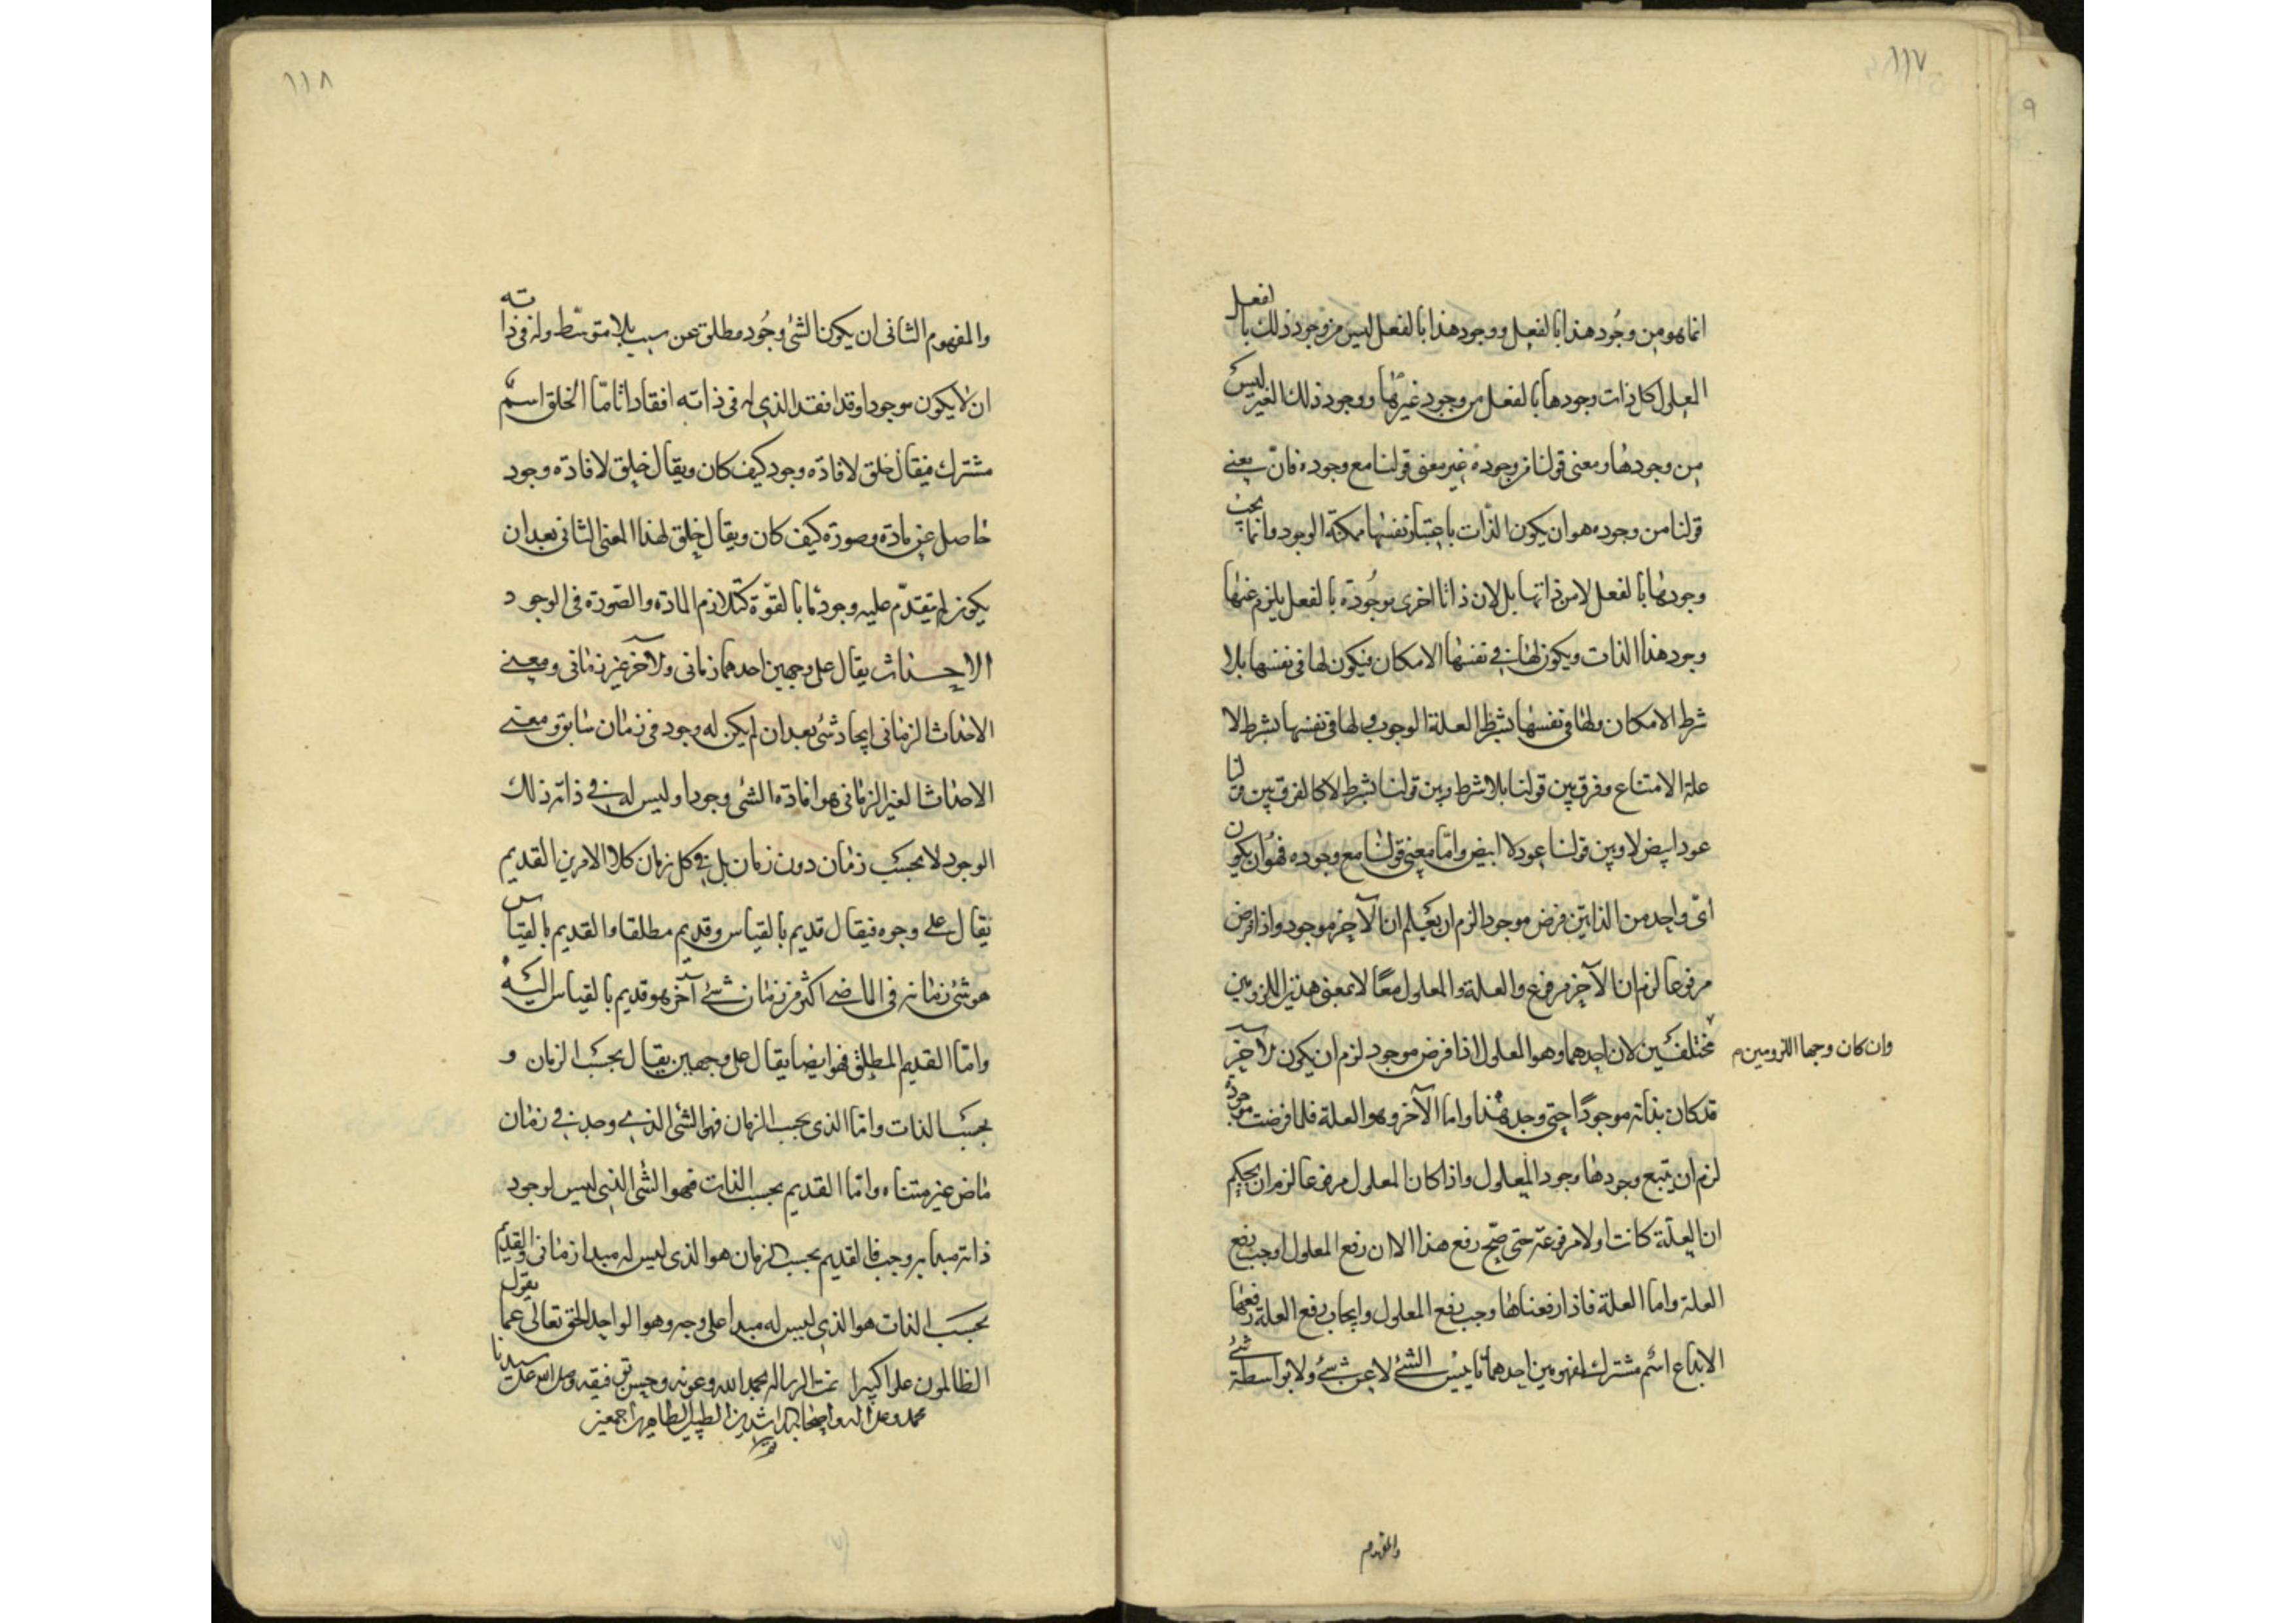 ١١٧
٩
انما هو من وجود هذا بالفعل ووجود هذا بالفعل ليس من وجود ذلك بالفعل
المعلول كل ذات وجودها بالفعل من وجود غيرها ووجود ذلك الغير ليس
من وجودها ومعنى قولنا من وجوده غير معنى قولنا مع وجوده فان معنى
قولنا من وجوده هو ان يكون الذات باعتبار نفسها ممكنة الوجود وانما يجب
وجودها بالفعل لا من ذاتها بل لان ذاتا اخرى موجودة بالفعل يلزم عنها
وجود هذا الذات ويكون لها في نفسها الامكان فيكون لها في نفسها بلا
شرط الامكان ولها في نفسها بشرط العلة الوجوب ولها في نفسها بشرط لا
علة الامتناع وفرق بين قولنا بلا شرط وبين قولنا بشرط لا كالفرق بين قولنا
عود ابيض لا وبين قولنا عود لا ابيض واما معنى قولنا مع وجوده فهو ان يكون
اى واحد من الذاتين فرض موجودا لزم ان يعلم ان الآخر موجود واذا فرض
مرفوعا لزم ان الآخر مرفوع والعلة والمعلول معا لا بمعنى هذين اللزومين
وان كان وجها اللزومين م
مختلفين لان احدهما وهو المعلول اذا فرض موجود لزم ان يكون الآخر
قد كان بذاته موجودا حتى وجد هذا واما الآخر وهو العلة فلما فرضت موجودة
لزم ان يتبع وجودها وجود المعلول واذا كان المعلول مرفوعا لزم ان يحكم
ان العلة كانت اولا مرفوعة حتى صح رفع هذا الا ان رفع المعلول اوجب رفع
العلة واما العلة فاذا رفعناها وجب رفع المعلول وايجاب رفع العلة رفعها
الابداع اسم مشترك لمفهومين احدهما تاييس الشئ لا عن شئ ولا بواسطة شئ
والمفهوم
١١٨
والمفهوم الثانى ان يكون الشئ وجود مطلق عن سبب بلا متوسط وله فى ذاته
ان لا يكون موجودا وقد افقد الذى له فى ذاته افقادا تاما الخلق اسم
مشترك فيقال خلق لافادة وجود كيف كان ويقال خلق لافادة وجود
حاصل عن مادة وصورة كيف كان ويقال خلق لهذا المعنى الثانى بعد ان
يكون لم يتقدم عليه وجود ما بالقوة كتلازم المادة والصورة فى الوجود
الاحداث يقال على وجهين احدهما زمانى والآخر غير زمانى ومعنى
الاحداث الزمانى ايجاد شئ بعد ان لم يكن له وجود فى زمان سابق ومعنى
الاحداث الغير الزمانى هو افادة الشئ وجودا وليس له فى ذاته ذلك
الوجود لا بحسب زمان دون زمان بل فى كل زمان كلا الامرين القديم
يقال على وجوه فيقال قديم بالقياس وقديم مطلقا والقديم بالقياس
هو شئ زمانه فى الماضى اكثر من زمان شئ آخر هو قديم بالقياس اليه
واما القديم المطلق فهو ايضا يقال على وجهين يقال بحسب الزمان و
بحسب الذات واما الذى بحسب الزمان فهو الشئ الذى وجد فى زمان
ماض غير متناه واما القديم بحسب الذات فهو الشئ الذى ليس لوجود
ذاته مبدأ به وجب فالقديم بحسب الزمان هو الذى ليس له مبدا زمانى والقديم
بحسب الذات هو الذى ليس له مبدا على وجه وهو الواحد الحق تعالى عما يقول
الظالمون علوا كبيرا تمت الرسالة بحمد الله وعونه وحسن توفيقه وصلى الله على سيدنا
محمد وعلى اله واصحابه الراشدين الطيبين الطاهرين اجمعين